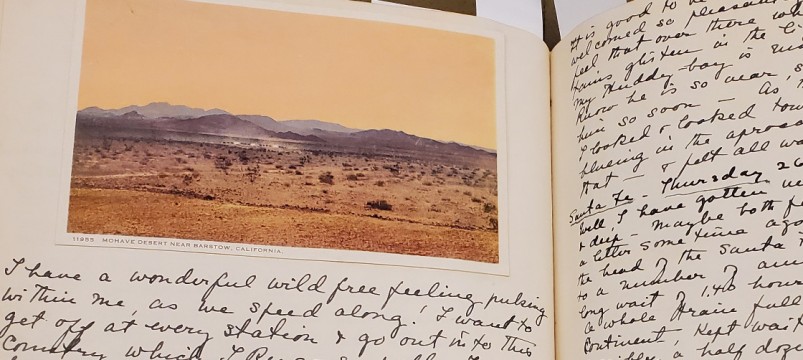 11955 MOHAVE DESERT NEAR BARSTOW, CALIFORNIA.
I have a wonderful wild free feeling pulsing
within me, as we speed along! I want to
get off at every station & go out in to this
country which I
It is good to be
welcomed so pleasant
feel that over there wh
tains glisten in the
my Huddy boy is
know he is so near,
him so soon — as,
I looked & looked
blueing in the
that — & felt all
Santa Fe — Thursday 26
Well, I have gotten
& deep — maybe both
a letter some time ago
the head of the Santa
to a number of
long wait of 1.40 hour
a whole train full
Continent, Kept wait
half